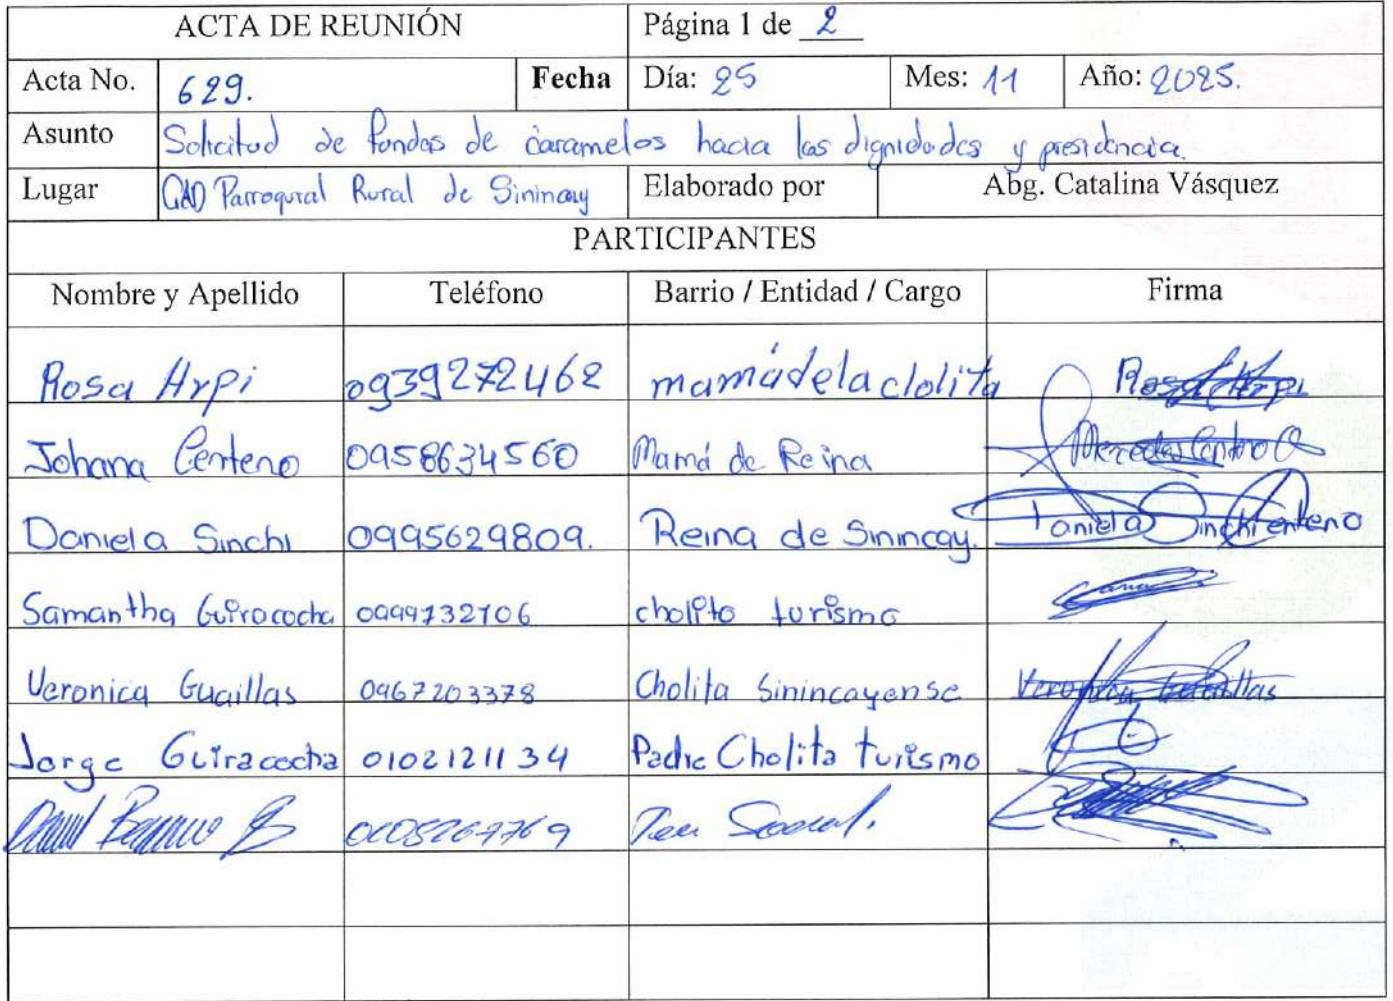 ACTA DE REUNIÓN Página 1 de 2
Acta No. 629. Fecha Día: 25 Mes: 11 Año: 2025.
Asunto Solicitud de fundas de caramelos hacia las dignidades y presidencia.
Lugar GAD Parroquial Rural de Sinincay Elaborado por Abg. Catalina Vásquez
PARTICIPANTES
Nombre y Apellido Teléfono Barrio / Entidad / Cargo Firma
Rosa Arpi 0939272462 mamádelaclolita Rosa Arpi
Johana Centeno 0958634560 Mamá de Reina Mercedes Centeno
Daniela Sinchi 0995629809. Reina de Sinincay. Daniela Sinchi Centeno
Samantha Guiracocha 0999732106 cholita turismo
Veronica Guaillas 0967203378 Cholita Sinincayense Veronica Guaillas
Jorge Guiracocha 0102121134 Padre Cholita turismo
Social.